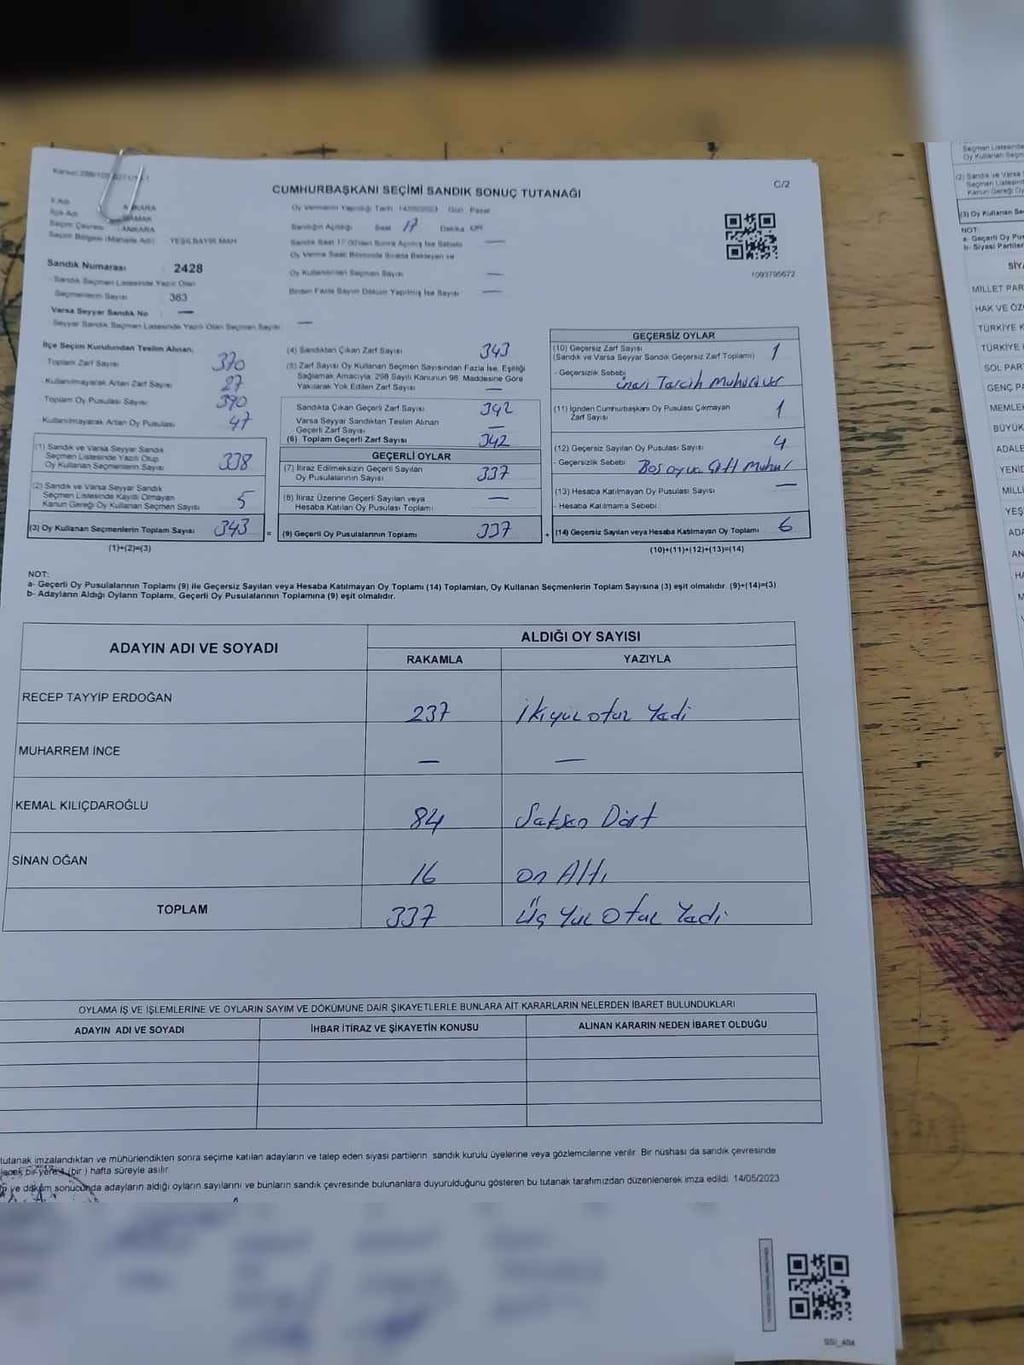 CUMHURBAŞKANI SEÇİMİ SANDIK SONUÇ TUTANAĞI
C/2
İl Adı ANKARA
İlçe Adı MAMAK
Seçim Çevresi ANKARA
Seçim Bölgesi (Mahalle Adı) YEŞİLBAYIR MAH
Sandık Numarası 2428
Sandık Seçmen Listesinde Yazılı Olan
Seçmenlerin Sayısı 363
Varsa Seyyar Sandık No —
Seyyar Sandık Seçmen Listesinde Yazılı Olan Seçmen Sayısı —
Oy Vermenin Yapıldığı Tarih 14/05/2023 Gün Pazar
Sandığın Açıldığı Saat 17 Dakika
Sandık Saat 17.00'den Sonra Açılmış İse Sebebi —
Oy Verme Saati Bitiminde Sırada Bekleyen ve
Oy Kullandırılan Seçmen Sayısı —
Birden Fazla Sayım Döküm Yapılmış İse Sayısı —
1093795672
İlçe Seçim Kurulundan Teslim Alınan;
Toplam Zarf Sayısı 370
Kullanılmayarak Artan Zarf Sayısı 27
Toplam Oy Pusulası Sayısı 390
Kullanılmayarak Artan Oy Pusulası 47
(1) Sandık ve Varsa Seyyar Sandık
Seçmen Listesinde Yazılı Olup
Oy Kullanan Seçmenlerin Sayısı 338
(2) Sandık ve Varsa Seyyar Sandık
Seçmen Listesinde Kayıtlı Olmayan
Kanun Gereği Oy Kullanan Seçmen Sayısı 5
(3) Oy Kullanan Seçmenlerin Toplam Sayısı 343 =
(1)+(2)=(3)
(4) Sandıktan Çıkan Zarf Sayısı 343
(5) Zarf Sayısı Oy Kullanan Seçmen Sayısından Fazla İse, Eşitliği
Sağlamak Amacıyla, 298 Sayılı Kanunun 98. Maddesine Göre
Yakılarak Yok Edilen Zarf Sayısı —
Sandıkta Çıkan Geçerli Zarf Sayısı 342
Varsa Seyyar Sandıktan Teslim Alınan
Geçerli Zarf Sayısı —
(6) Toplam Geçerli Zarf Sayısı 342
GEÇERLİ OYLAR
(7) İtiraz Edilmeksizin Geçerli Sayılan
Oy Pusulalarının Sayısı 337
(8) İtiraz Üzerine Geçerli Sayılan veya
Hesaba Katılan Oy Pusulası Toplamı —
(9) Geçerli Oy Pusulalarının Toplamı 337 +
GEÇERSİZ OYLAR
(10) Geçersiz Zarf Sayısı
(Sandık ve Varsa Seyyar Sandık Geçersiz Zarf Toplamı) 1
- Geçersizlik Sebebi Tercih Mührü var
(11) İçinden Cumhurbaşkanı Oy Pusulası Çıkmayan
Zarf Sayısı 1
(12) Geçersiz Sayılan Oy Pusulası Sayısı 4
- Geçersizlik Sebebi Boş oy çift Mühür
(13) Hesaba Katılmayan Oy Pusulası Sayısı —
- Hesaba Katılmama Sebebi
(14) Geçersiz Sayılan veya Hesaba Katılmayan Oy Toplamı 6
(10)+(11)+(12)+(13)=(14)
NOT:
a- Geçerli Oy Pusulalarının Toplamı (9) ile Geçersiz Sayılan veya Hesaba Katılmayan Oy Toplamı (14) Toplamları, Oy Kullanan Seçmenlerin Toplam Sayısına (3) eşit olmalıdır. (9)+(14)=(3)
b- Adayların Aldığı Oyların Toplamı, Geçerli Oy Pusulalarının Toplamına (9) eşit olmalıdır.
ADAYIN ADI VE SOYADI
ALDIĞI OY SAYISI
RAKAMLA YAZIYLA
RECEP TAYYİP ERDOĞAN 237 İkiyüz otuz Yedi
MUHARREM İNCE — —
KEMAL KILIÇDAROĞLU 84 Seksen Dört
SİNAN OĞAN 16 on Altı
TOPLAM 337 Üç Yüz Otuz Yedi
OYLAMA İŞ VE İŞLEMLERİNE VE OYLARIN SAYIM VE DÖKÜMÜNE DAİR ŞİKAYETLERLE BUNLARA AİT KARARLARIN NELERDEN İBARET BULUNDUKLARI
ADAYIN ADI VE SOYADI İHBAR İTİRAZ VE ŞİKAYETİN KONUSU ALINAN KARARIN NEDEN İBARET OLDUĞU
tutanak imzalandıktan ve mühürlendikten sonra seçime katılan adayların ve talep eden siyasi partilerin sandık kurulu üyelerine veya gözlemcilerine verilir. Bir nüshası da sandık çevresinde
bir yere 1 (bir) hafta süreyle asılır.
ve döküm sonucunda adayların aldığı oyların sayılarını ve bunların sandık çevresinde bulunanlara duyurulduğunu gösteren bu tutanak tarafımızdan düzenlenerek imza edildi. 14/05/2023
Seçmen Listesinde
Oy Kullanan Seçm
(2) Sandık ve Varsa
Seçmen Listesinde
Kanun Gereği Oy
(3) Oy Kullanan Se
NOT:
a- Geçerli Oy Pu
b- Siyasi Partiler
SİYA
MİLLET PAR
HAK VE ÖZ
TÜRKİYE K
TÜRKİYE İ
SOL PAR
GENÇ P
MEMLE
BÜYÜK
ADALE
YENİD
MİLLİ
YEŞ
ADA
AN
HA
M